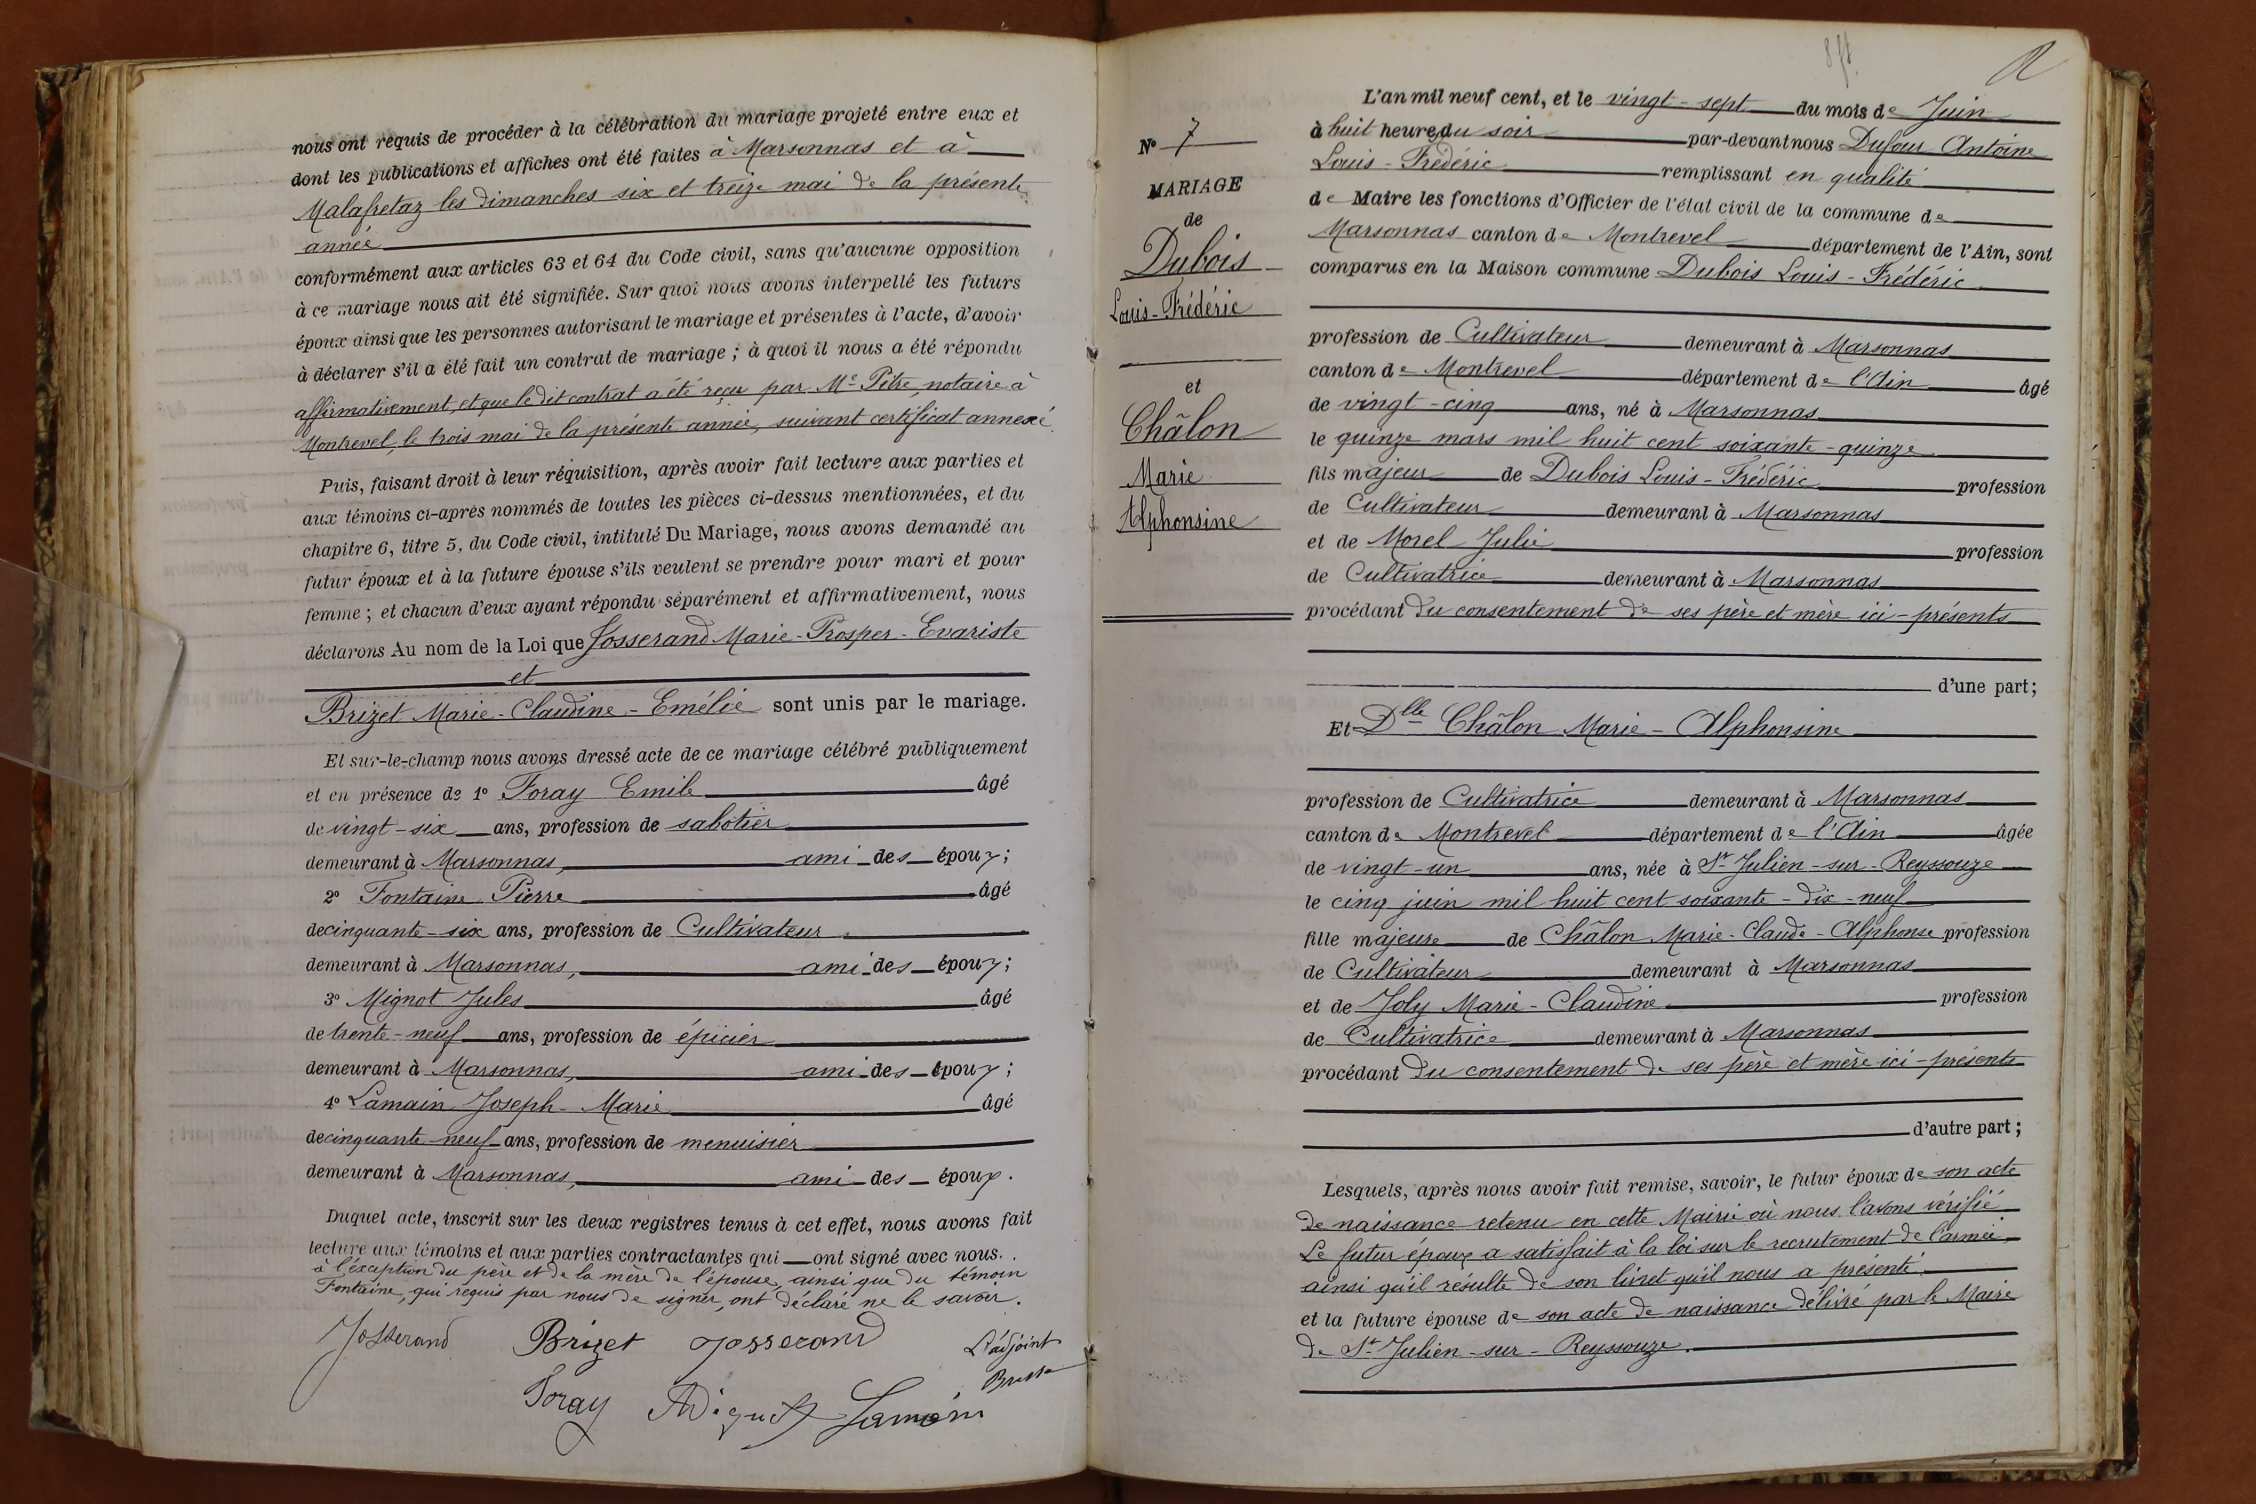 nous ont requis de procéder à la célébration du mariage projeté entre eux et
dont les publications et affiches ont été faites à Marsonnas et à
Malafretaz les dimanches six et treize mai de la présente
année
conformément aux articles 63 et 64 du Code civil, sans qu'aucune opposition
à ce mariage nous ait été signifiée. Sur quoi nous avons interpellé les futurs
époux ainsi que les personnes autorisant le mariage et présentes à l'acte, d'avoir
à déclarer s'il a été fait un contrat de mariage ; à quoi il nous a été répondu
affirmativement, et que le dit contrat a été reçu par Me Pitre, notaire à
Montrevel, le trois mai de la présente année, suivant certificat annexé.
Puis, faisant droit à leur réquisition, après avoir fait lecture aux parties et
aux témoins ci-après nommés de toutes les pièces ci-dessus mentionnées, et du
chapitre 6, titre 5, du Code civil, intitulé Du Mariage, nous avons demandé au
futur époux et à la future épouse s'ils veulent se prendre pour mari et pour
femme ; et chacun d'eux ayant répondu séparément et affirmativement, nous
déclarons Au nom de la Loi que Josserand Marie-Prosper-Evariste
et
Brizet Marie-Claudine-Emélie sont unis par le mariage.
Et sur-le-champ nous avons dressé acte de ce mariage célébré publiquement
et en présence de 1° Foray Emile âgé
de vingt-six ans, profession de sabotier
demeurant à Marsonnas, ami des époux ;
2° Fontaine Pierre âgé
de cinquante-six ans, profession de Cultivateur
demeurant à Marsonnas, ami des époux ;
3° Mignot Jules âgé
de trente-neuf ans, profession de épicier
demeurant à Marsonnas, ami des époux ;
4° Lamain Joseph-Marie âgé
de cinquante-neuf ans, profession de menuisier
demeurant à Marsonnas, ami des époux.
Duquel acte, inscrit sur les deux registres tenus à cet effet, nous avons fait
lecture aux témoins et aux parties contractantes qui ont signé avec nous.
à l'exception du père et de la mère de l'épouse, ainsi que du témoin
Fontaine, qui requis par nous de signer, ont déclaré ne le savoir.
Josserand Brizet Josserand L'adjoint
Foray Mignot Lamain
N° 7
MARIAGE
de
Dubois
Louis-Frédéric
et
Châlon
Marie
Alphonsine
L'an mil neuf cent, et le vingt-sept du mois de Juin
à huit heures du soir par-devant nous Dufour Antoine
Louis-Frédéric remplissant en qualité
de Maire les fonctions d'Officier de l'état civil de la commune de
Marsonnas canton de Montrevel département de l'Ain, sont
comparus en la Maison commune Dubois Louis-Frédéric
profession de Cultivateur demeurant à Marsonnas
canton de Montrevel département de l'Ain âgé
de vingt-cinq ans, né à Marsonnas
le quinze mars mil huit cent soixante-quinze
fils majeur de Dubois Louis-Frédéric profession
de Cultivateur demeurant à Marsonnas
et de Morel Julie profession
de Cultivatrice demeurant à Marsonnas
procédant du consentement de ses père et mère ici-présents
d'une part ;
Et Dlle Châlon Marie-Alphonsine
profession de Cultivatrice demeurant à Marsonnas
canton de Montrevel département de l'Ain âgée
de vingt-un ans, née à St Julien-sur-Reyssouze
le cinq juin mil huit cent soixante-dix-neuf
fille majeure de Châlon Marie-Claude-Alphonse profession
de Cultivateur demeurant à Marsonnas
et de Joly Marie-Claudine profession
de Cultivatrice demeurant à Marsonnas
procédant du consentement de ses père et mère ici-présents
d'autre part ;
Lesquels, après nous avoir fait remise, savoir, le futur époux de son acte
de naissance retenu en cette Mairie où nous l'avons vérifié
Le futur époux a satisfait à la loi sur le recrutement de l'armée
ainsi qu'il résulte de son livret qu'il nous a présenté
et la future épouse de son acte de naissance délivré par le Maire
de St Julien-sur-Reyssouze.